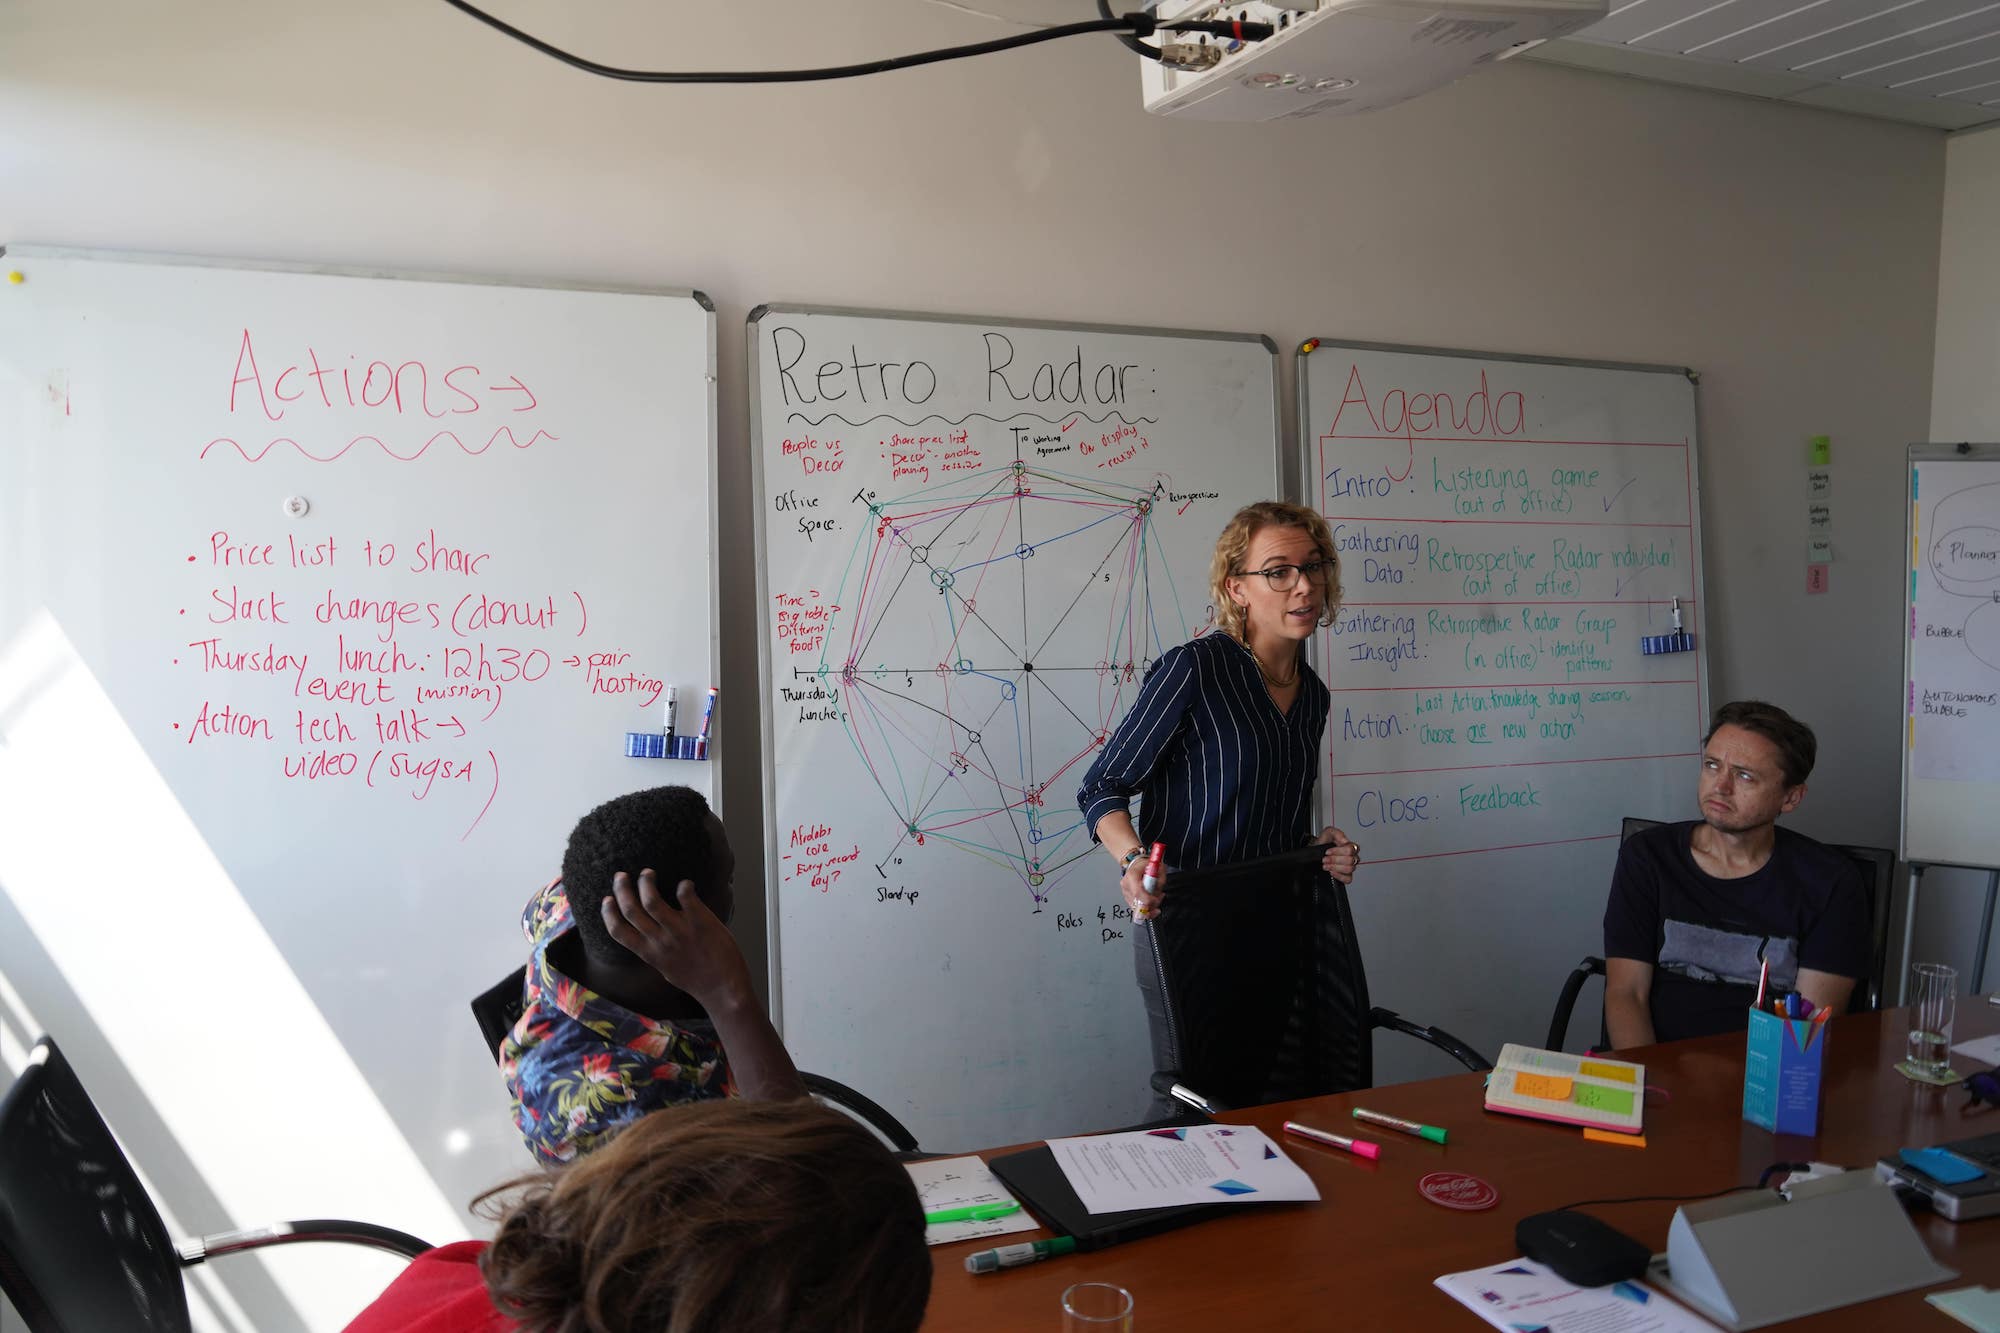 Actions →
• Price list to share
• Slack changes (donut)
• Thursday lunch: 12h30 → pair
hosting
event (mission)
• Action tech talk →
video (SUGSA)
Retro Radar:
People vs
Decor
• Share price list
• Decor - another
planning session
10
Working
Agreement
On display
- revisit it
Office
Space.
10
Retrospectives
Time >
Big table?
Different
food?
5
5
10
5
5
Thursday
Lunches
5
Afrolabs
core
- Every second
day?
10
Stand-up
10
Roles & Resp
Doc
Agenda:
Intro: Listening game
(out of office)
Gathering
Data: Retrospective Radar individual
(out of office)
Gathering
Insight: Retrospective Radar Group
(in office) identify
patterns
Action: Last Action: Knowledge sharing session
Choose one new action
Close: Feedback
Gathering
Data
Gathering
Insight
Action
Close
Planner
BUBBLE
AUTONOMOUS
BUBBLE
Coca-Cola